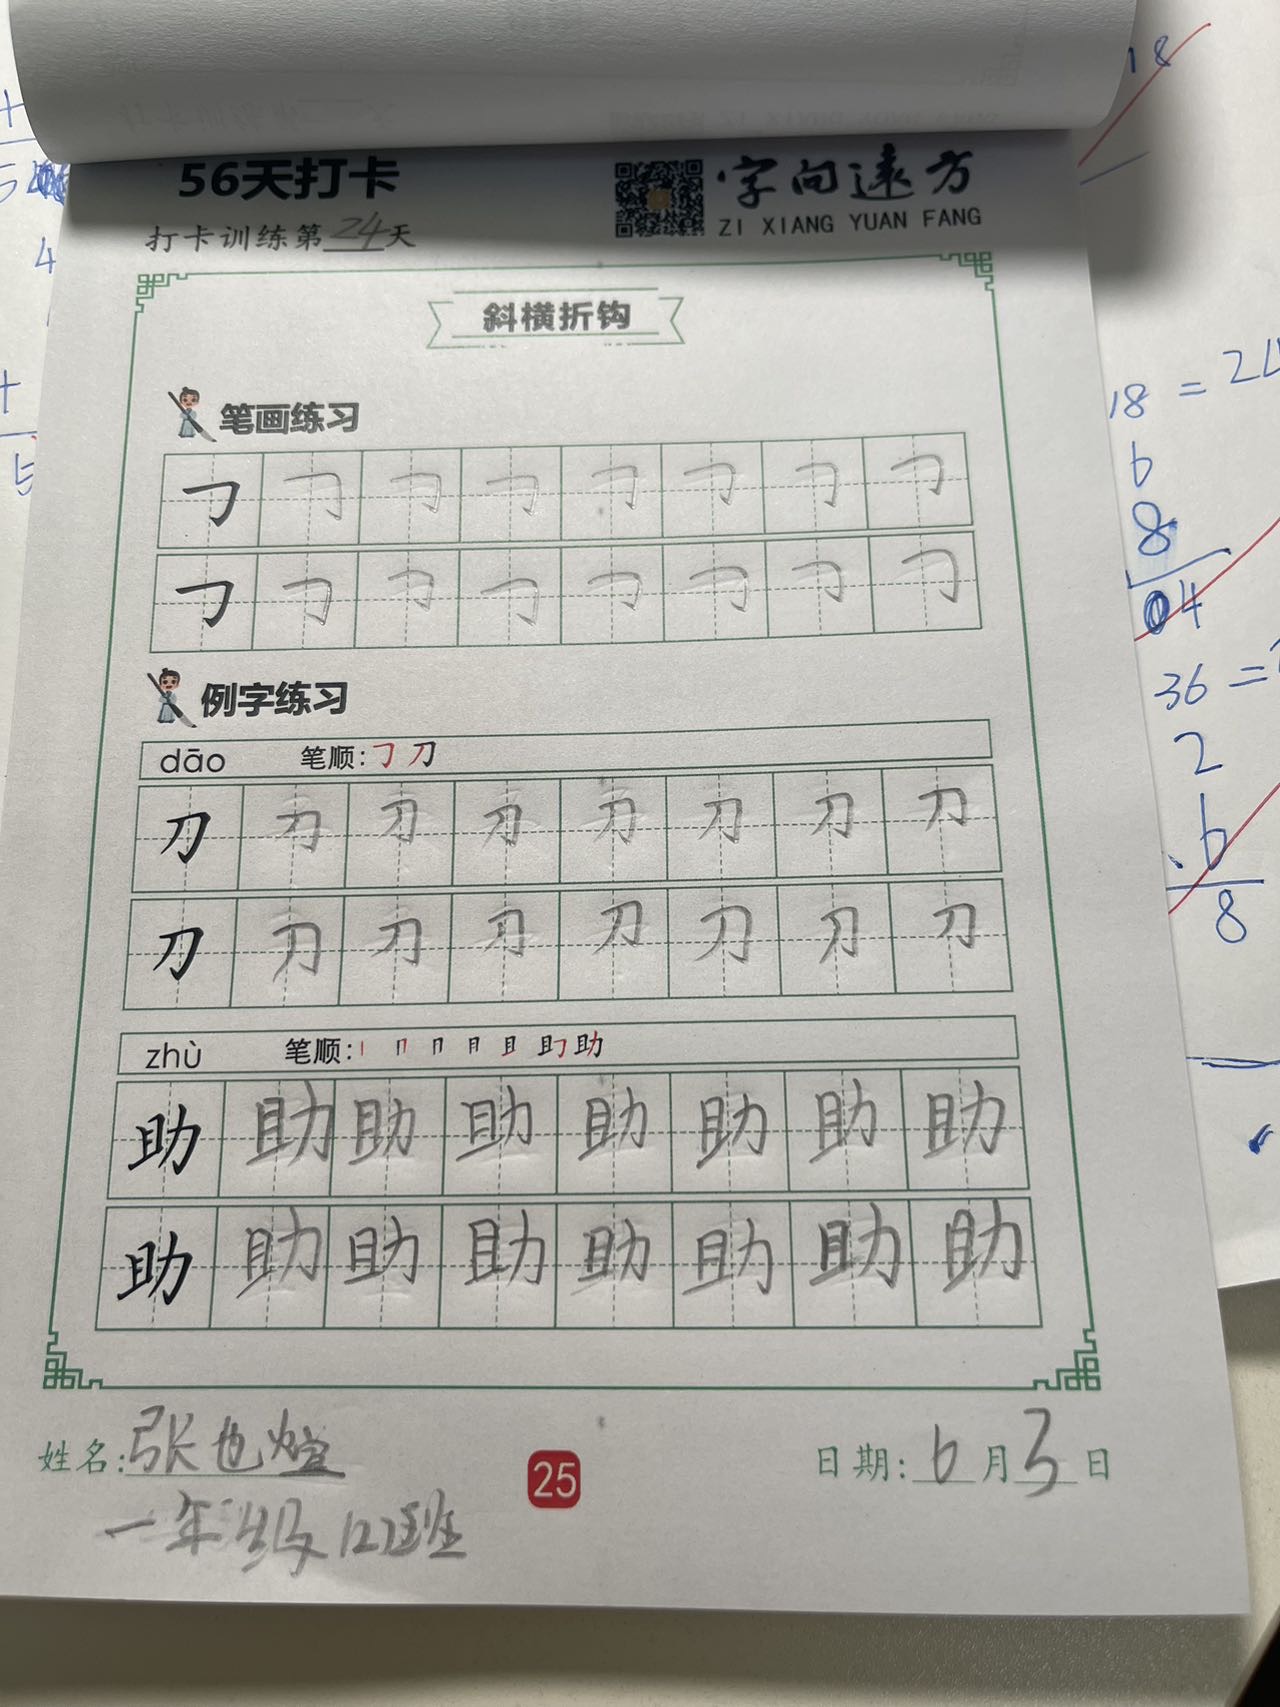 56天打卡
打卡训练第24天
字向远方
ZI XIANG YUAN FANG
斜横折钩
笔画练习
㇆ ㇆ ㇆ ㇆ ㇆ ㇆ ㇆ ㇆
㇆ ㇆ ㇆ ㇆ ㇆ ㇆ ㇆ ㇆
例字练习
dāo 笔顺: ㇆ 刀
刀 刀 刀 刀 刀 刀 刀 刀
刀 刀 刀 刀 刀 刀 刀 刀
zhù 笔顺: 丨 冂 月 且 助
助 助 助 助 助 助 助 助
助 助 助 助 助 助 助 助
姓名:张也煊
25
日期:6月3日
一年级 班
18
18 = 24
6
8
04
36 =
2
6
8
5
4
5